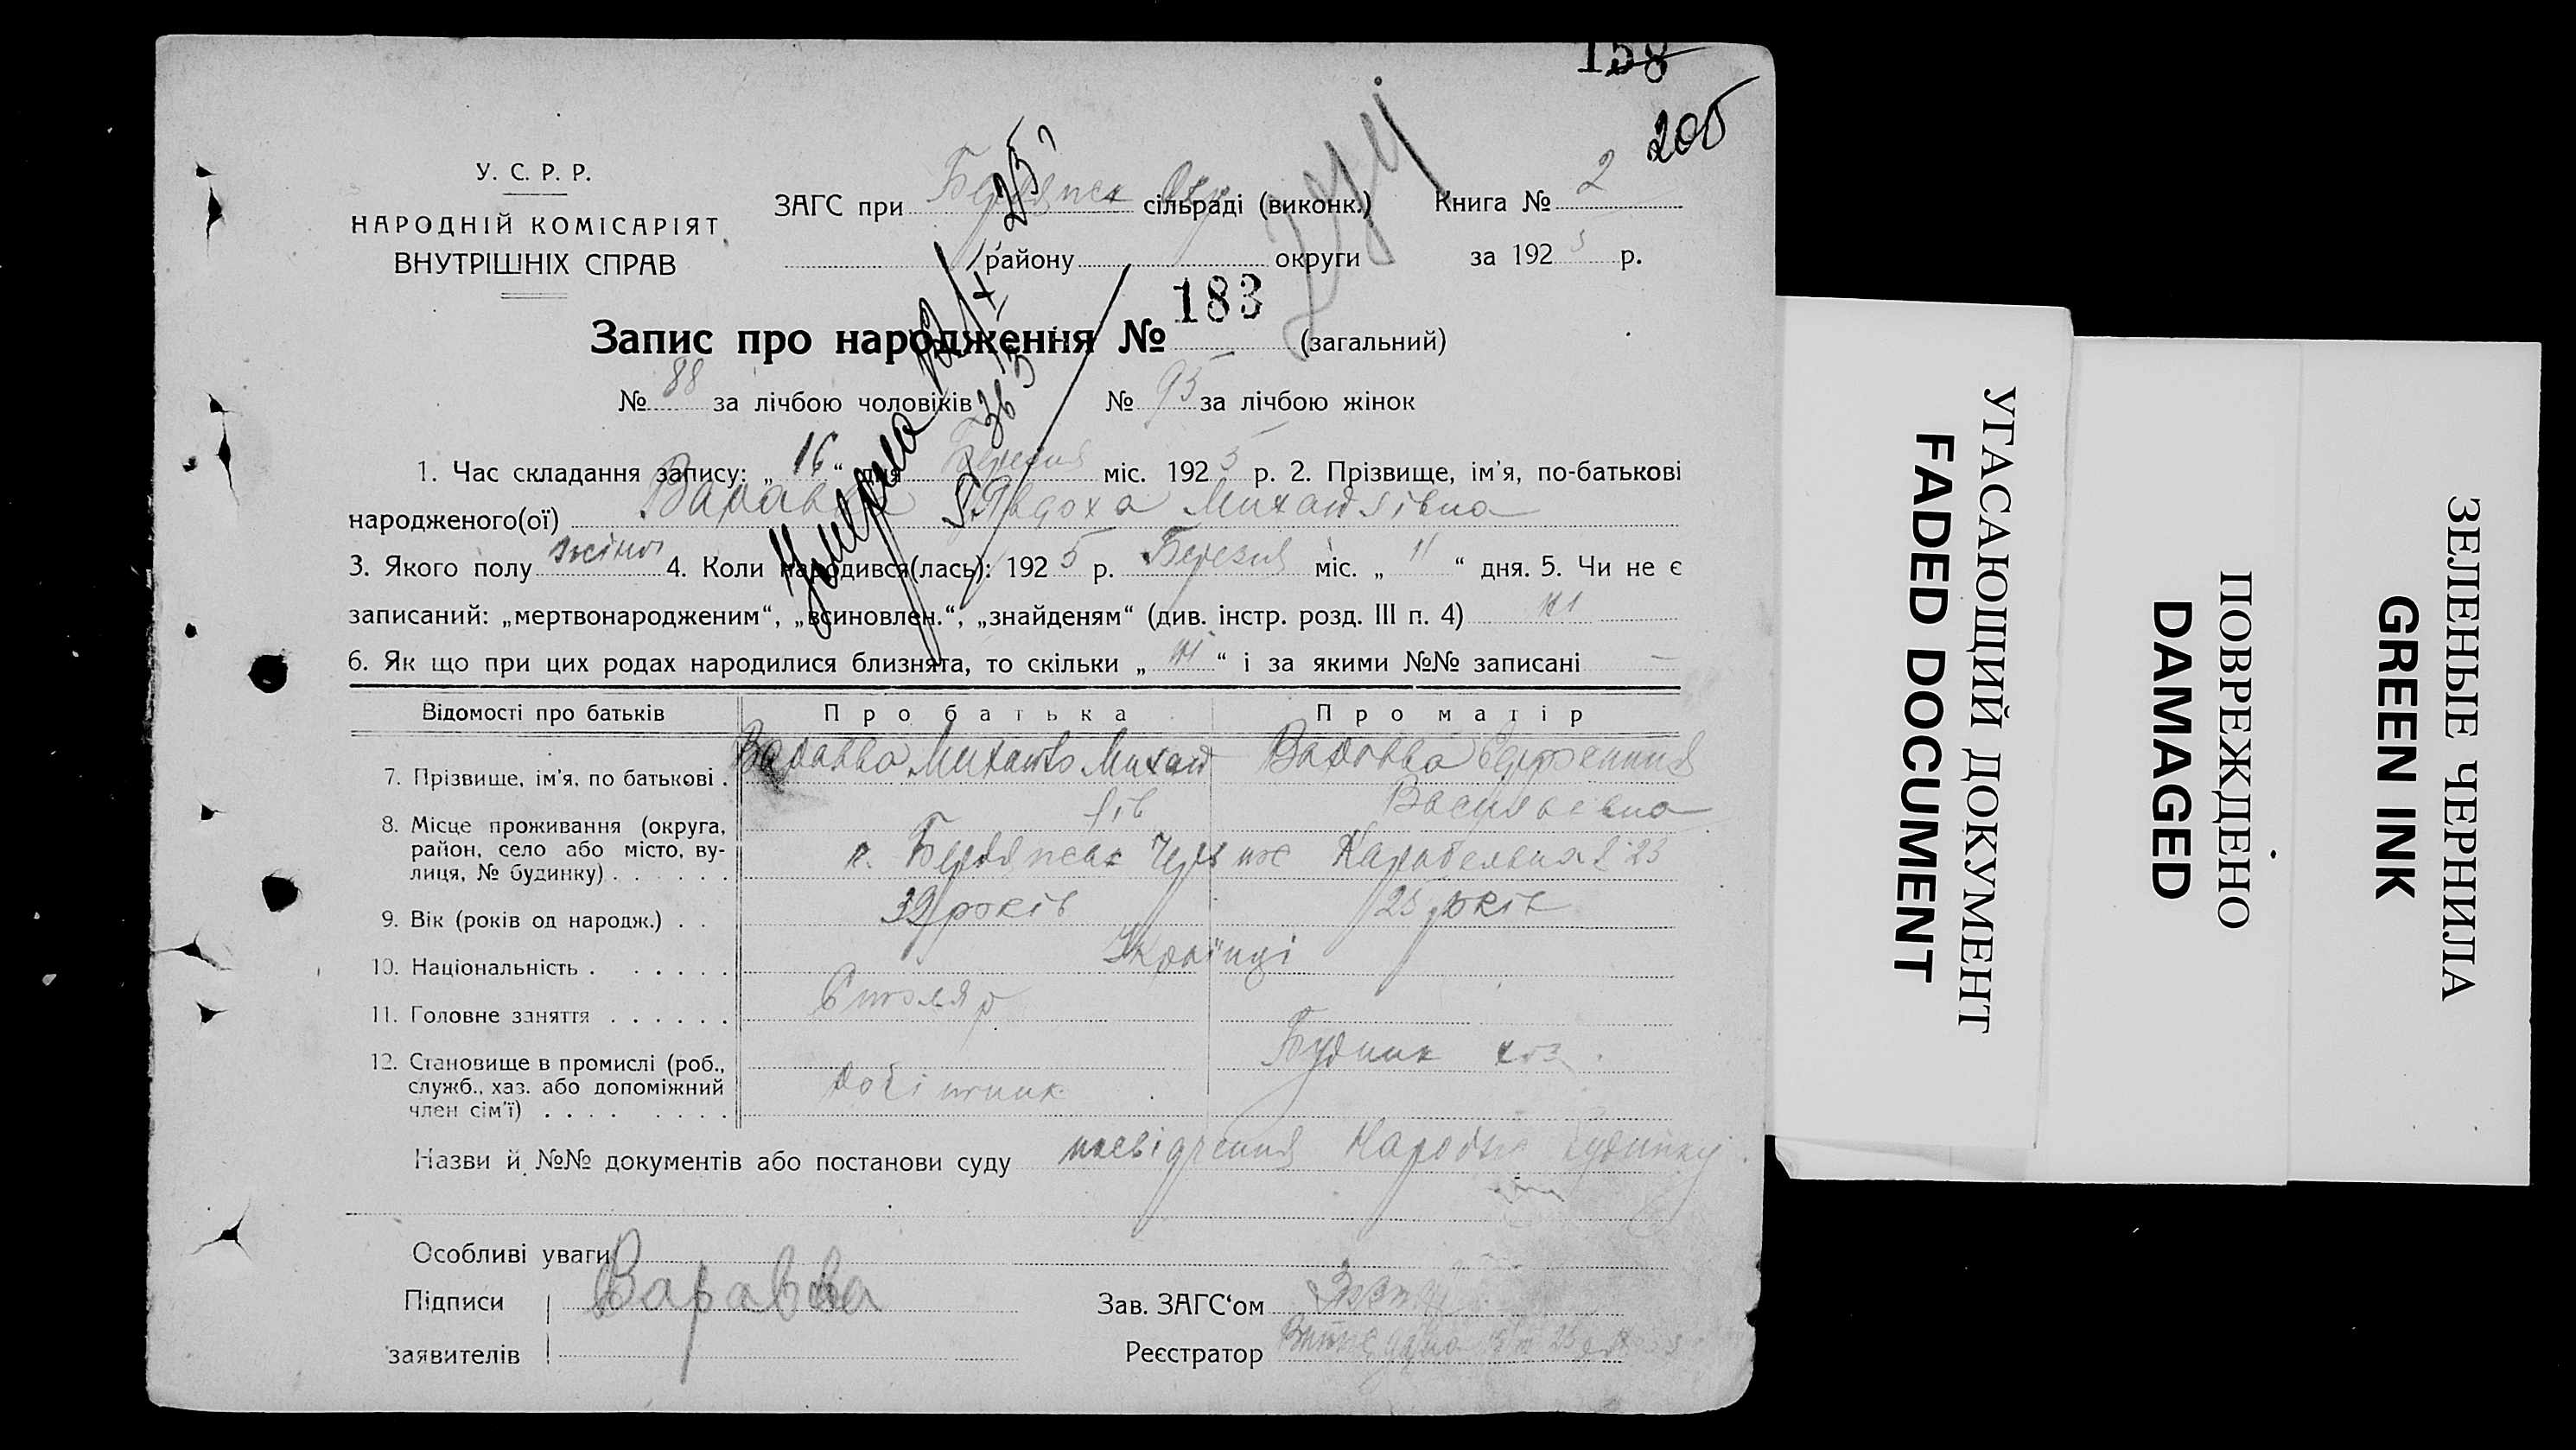 158
205
У. С. Р. Р.
НАРОДНІЙ КОМІСАРІЯТ
ВНУТРІШНІХ СПРАВ
ЗАГС при Бердянск Окр сільраді (виконк.) Книга № 2
району округи за 192 5 р.
Запис про народження № 183 (загальний)
№ 88 за лічбою чоловіків № 95 за лічбою жінок
1. Час складання запису: „ 16 “ дня Березня міс. 192 5 р. 2. Прізвище, ім’я, по-батькові
народженого(ої) Варавва Явдоха Михайлівна
3. Якого полу жіноч 4. Коли народився(лась): 192 5 р. Березня міс. „ 11 “ дня. 5. Чи не є
записаний: „мертвонародженим“, „всиновлен.“, „знайденям“ (див. інстр. розд. III п. 4) ні
6. Як що при цих родах народилися близнята, то скільки „ ні “ і за якими №№ записані —
Відомості про батьків Про батька Про матір
7. Прізвище, ім’я, по батькові . Варавва Михайло Михай Варавва
лів Васильевна
8. Місце проживання (округа,
район, село або місто, ву-
лиця, № будинку) . . . . . . Бердянськ 23
9. Вік (років од народж.) . . 32 років 25 років
10. Національність . . . . . . Українці
11. Головне заняття . . . . . . Столяр
12. Становище в промислі (роб.,
служб., хаз. або допоміжний
член сім’ї) . . . . . . . . робітник
Назви й №№ документів або постанови суду посвідчення Народн будинку
Особливі уваги
Підписи Варавва Зав. ЗАГС‘ом
заявителів Реєстратор
УГАСАЮЩИЙ ДОКУМЕНТ
FADED DOCUMENT
ПОВРЕЖДЕНО
DAMAGED
ЗЕЛЕНЫЕ ЧЕРНИЛА
GREEN INK